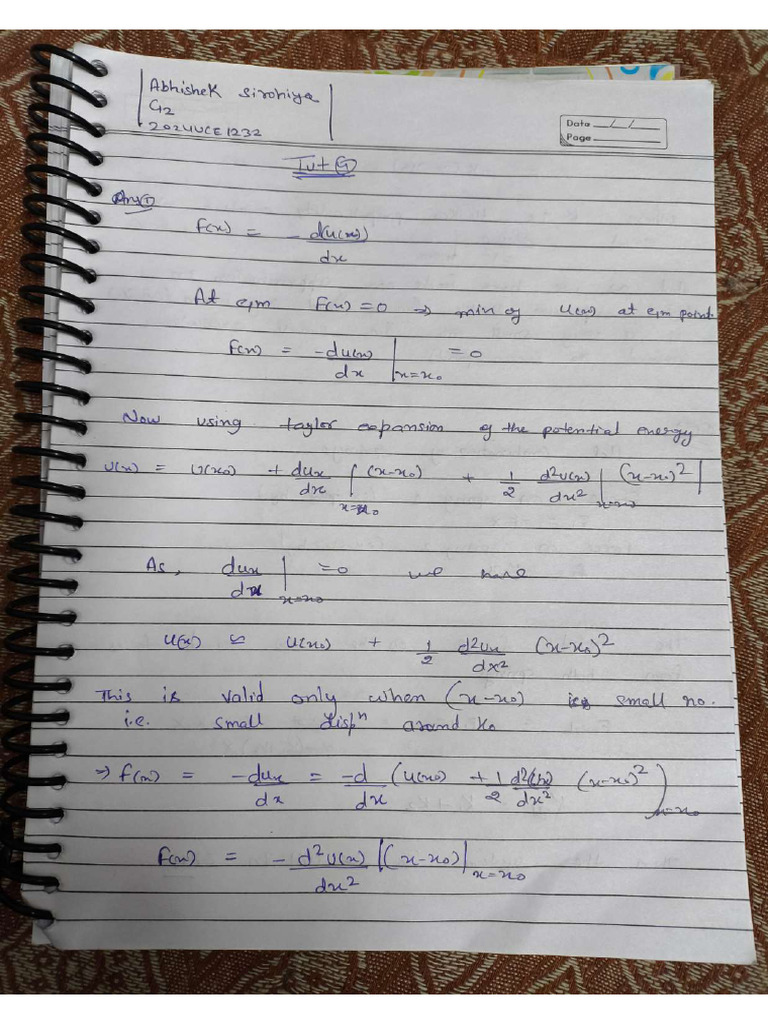 Abhishek Sirohiya
G2
2024UCE1232
Date __/__/__
Page ______
Tut
Ans ①
F(x) = - d(u(x)) / dx
At eqm F(x) = 0 ⇒ min of U(x) at eqm point
F(x) = -du(x)/dx | x=x₀ = 0
Now using taylor expansion of the potential energy
U(x) = U(x₀) + dux/dx | x=x₀ (x-x₀) + 1/2 d²U(x)/dx² | x=x₀ (x-x₀)² |
As, dux/dx | x=x₀ = 0 we have
U(x) ≃ U(x₀) + 1/2 d²Ux/dx² (x-x₀)²
This is valid only when (x-x₀) is small no.
i.e. small dispⁿ around x₀
⇒ f(x) = -dux/dx = -d/dx (U(x₀) + 1/2 d²U(x)/dx² (x-x₀)²) x=x₀
F(x) = - d²U(x)/dx² | (x-x₀) | x=x₀